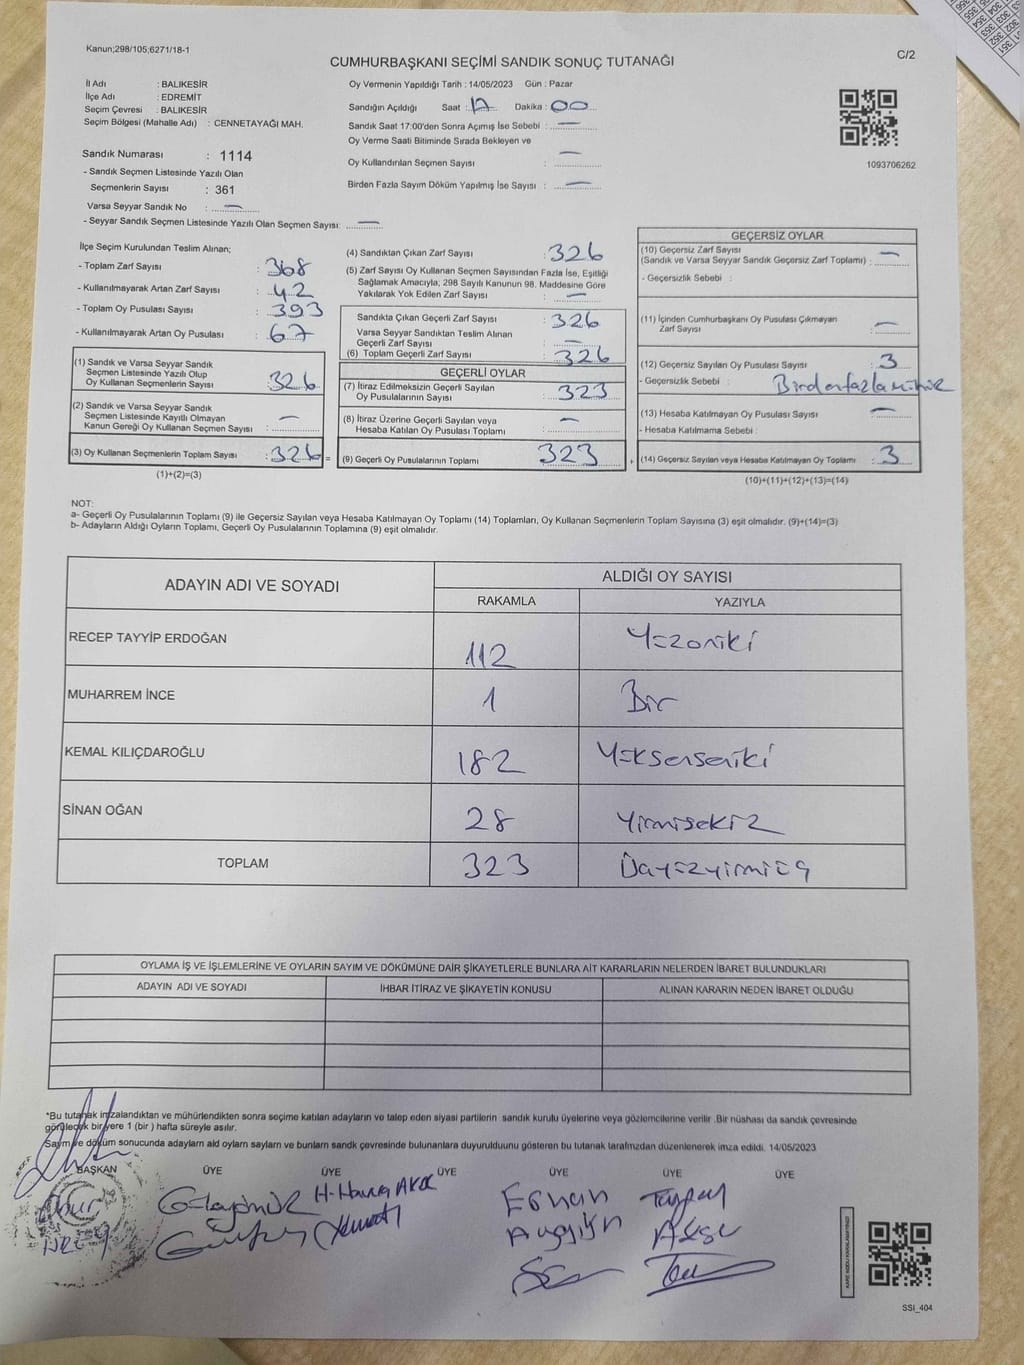 Kanun;298/105;6271/18-1
CUMHURBAŞKANI SEÇİMİ SANDIK SONUÇ TUTANAĞI
C/2
İl Adı : BALIKESİR
İlçe Adı : EDREMİT
Seçim Çevresi : BALIKESİR
Seçim Bölgesi (Mahalle Adı) : CENNETAYAĞI MAH.
Sandık Numarası : 1114
- Sandık Seçmen Listesinde Yazılı Olan
Seçmenlerin Sayısı : 361
Varsa Seyyar Sandık No : —
- Seyyar Sandık Seçmen Listesinde Yazılı Olan Seçmen Sayısı: —
Oy Vermenin Yapıldığı Tarih : 14/05/2023 Gün : Pazar
Sandığın Açıldığı Saat : 17 Dakika : 00
Sandık Saat 17:00'den Sonra Açımış İse Sebebi : —
Oy Verme Saati Bitiminde Sırada Bekleyen ve
Oy Kullandırılan Seçmen Sayısı : —
Birden Fazla Sayım Döküm Yapılmış İse Sayısı : —
1093706262
İlçe Seçim Kurulundan Teslim Alınan;
- Toplam Zarf Sayısı : 368
- Kullanılmayarak Artan Zarf Sayısı : 42
- Toplam Oy Pusulası Sayısı : 393
- Kullanılmayarak Artan Oy Pusulası : 67
(1) Sandık ve Varsa Seyyar Sandık
Seçmen Listesinde Yazılı Olup
Oy Kullanan Seçmenlerin Sayısı : 326
(2) Sandık ve Varsa Seyyar Sandık
Seçmen Listesinde Kayıtlı Olmayan
Kanun Gereği Oy Kullanan Seçmen Sayısı : —
(3) Oy Kullanan Seçmenlerin Toplam Sayısı : 326 =
(1)+(2)=(3)
(4) Sandıktan Çıkan Zarf Sayısı : 326
(5) Zarf Sayısı Oy Kullanan Seçmen Sayısından Fazla İse, Eşitliği
Sağlamak Amacıyla; 298 Sayılı Kanunun 98. Maddesine Göre
Yakılarak Yok Edilen Zarf Sayısı : —
Sandıkta Çıkan Geçerli Zarf Sayısı : 326
Varsa Seyyar Sandıktan Teslim Alınan
Geçerli Zarf Sayısı : —
(6) Toplam Geçerli Zarf Sayısı : 326
GEÇERLİ OYLAR
(7) İtiraz Edilmeksizin Geçerli Sayılan
Oy Pusulalarının Sayısı : 323
(8) İtiraz Üzerine Geçerli Sayılan veya
Hesaba Katılan Oy Pusulası Toplamı : —
(9) Geçerli Oy Pusulalarının Toplamı : 323 +
GEÇERSİZ OYLAR
(10) Geçersiz Zarf Sayısı
(Sandık ve Varsa Seyyar Sandık Geçersiz Zarf Toplamı) : —
- Geçersizlik Sebebi :
(11) İçinden Cumhurbaşkanı Oy Pusulası Çıkmayan
Zarf Sayısı : —
(12) Geçersiz Sayılan Oy Pusulası Sayısı : 3
- Geçersizlik Sebebi : Birdenfazla mühür
(13) Hesaba Katılmayan Oy Pusulası Sayısı : —
- Hesaba Katılmama Sebebi :
(14) Geçersiz Sayılan veya Hesaba Katılmayan Oy Toplamı : 3
(10)+(11)+(12)+(13)=(14)
NOT:
a- Geçerli Oy Pusulalarının Toplamı (9) ile Geçersiz Sayılan veya Hesaba Katılmayan Oy Toplamı (14) Toplamları, Oy Kullanan Seçmenlerin Toplam Sayısına (3) eşit olmalıdır. (9)+(14)=(3)
b- Adayların Aldığı Oyların Toplamı, Geçerli Oy Pusulalarının Toplamına (9) eşit olmalıdır.
ADAYIN ADI VE SOYADI
ALDIĞI OY SAYISI
RAKAMLA YAZIYLA
RECEP TAYYİP ERDOĞAN 112 Yüzoniki
MUHARREM İNCE 1 Bir
KEMAL KILIÇDAROĞLU 182 Yüksenseniki
SİNAN OĞAN 28 Yirmisekiz
TOPLAM 323 Üçyüzyirmiüç
OYLAMA İŞ VE İŞLEMLERİNE VE OYLARIN SAYIM VE DÖKÜMÜNE DAİR ŞİKAYETLERLE BUNLARA AİT KARARLARIN NELERDEN İBARET BULUNDUKLARI
ADAYIN ADI VE SOYADI İHBAR İTİRAZ VE ŞİKAYETİN KONUSU ALINAN KARARIN NEDEN İBARET OLDUĞU
*Bu tutanak imzalandıktan ve mühürlendikten sonra seçime katılan adayların ve talep eden siyasi partilerin sandık kurulu üyelerine veya gözlemcilerine verilir. Bir nüshası da sandık çevresinde
görülecek bir yere 1 (bir ) hafta süreyle asılır.
Sayım ve döküm sonucunda adayların ald oyların sayların ve bunların sandk çevresinde bulunanlara duyurulduunu gösteren bu tutanak tarafmzdan düzenlenerek imza edildi. 14/05/2023
BAŞKAN ÜYE ÜYE ÜYE ÜYE ÜYE ÜYE
SSI_404